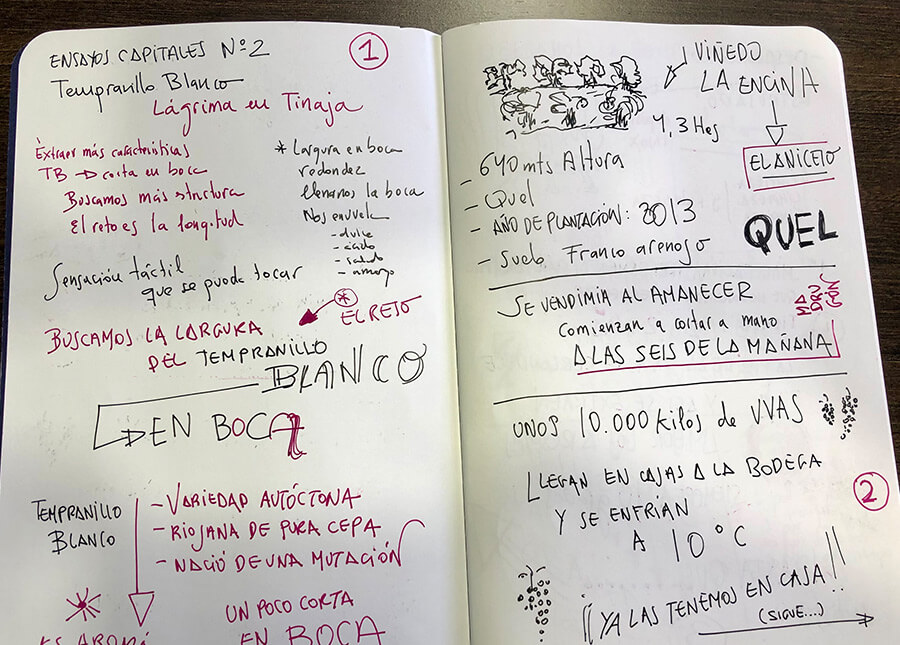 ENSAYOS CAPITALES Nº2
1
Tempranillo Blanco
Lágrima en Tinaja
Extraer más características
TB → corta en boca
Buscamos más structura
El reto es la longitud
* Largura en boca
redondez
llenarnos la boca
Nos envuelve
- dulce
- ácido
- salado
- amargo
Sensación táctil
que se puede tocar
* EL RETO
BUSCAMOS LA LARGURA
DEL TEMPRANILLO
BLANCO
→ EN BOCA
TEMPRANILLO
BLANCO
- VARIEDAD AUTÓCTONA
- RIOJANA DE PURA CEPA
- NACIÓ DE UNA MUTACIÓN
UN POCO CORTA
EN BOCA
VIÑEDO
LA ENCINA
4,3 Hes
EL ANICETO
- 640 mts Altura
- Quel
- AÑO DE PLANTACIÓN: 2013
- Suelo Franco arenoso
QUEL
SE VENDIMIA AL AMANECER
MADRUGÓN
comienzan a cortar a mano
A LAS SEIS DE LA MAÑANA
UNOS 10.000 kilos de UVAS
LLEGAN EN CAJAS A LA BODEGA
2
Y SE ENFRÍAN
A 10ºC
¡¡YA LAS TENEMOS EN CASA!!
(SIGUE...)